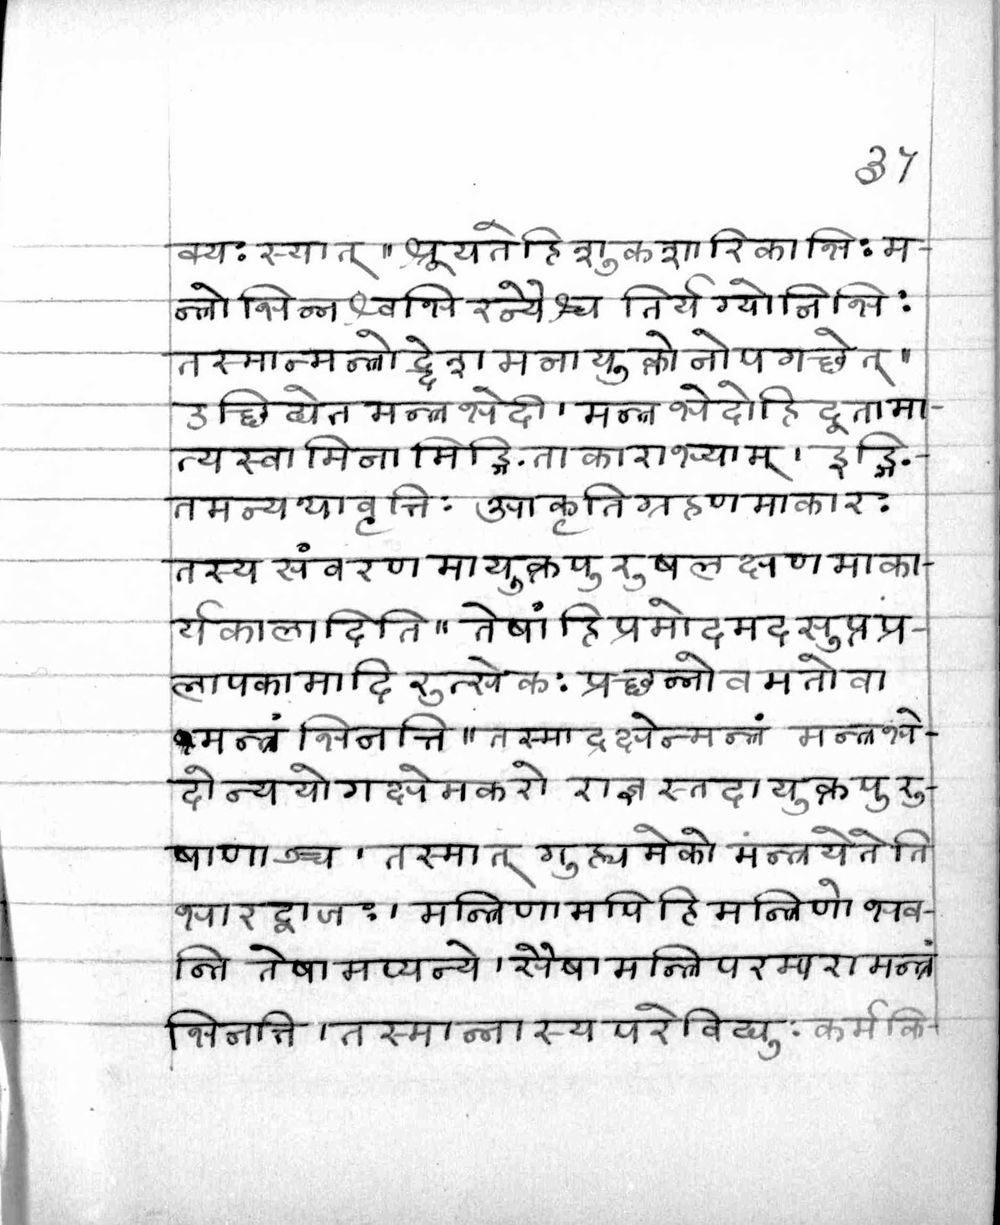 37
क्यः स्यात् ॥ श्रूयते हि शुकशारिकाभिः म-
न्त्रो भिन्न श्वभिरन्यैश्च तिर्यग्योनिभिः
तस्मान्मन्त्रोद्देशमनायुक्तो नोपगच्छेत् ॥
उच्छिद्येत मन्त्रभेदी । मन्त्रभेदो हि दूतामा-
त्यस्वामिनामिङ्गिताकाराभ्याम् । इङ्गि-
तमन्यथावृत्तिः आकृतिग्रहणमाकारः
तस्य संवरणमायुक्तपुरुषलक्षणमाका-
र्यकालादिति ॥ तेषां हि प्रमोदमदसुप्तप्र-
लापकामादिरुत्सेकः प्रच्छन्नो वमतो वा
मन्त्रं भिनत्ति ॥ तस्माद्रक्षेन्मन्त्रं मन्त्रभे-
दोन्ययोगक्षेमकरो राज्ञस्तदायुक्तपुरु-
षाणाञ्च । तस्मात् गुह्यमेको मंन्त्रयेतेति
भारद्वाजः । मन्त्रिणामपि हि मन्त्रिणो भव-
न्ति तेषामप्यन्ये । सैषा मन्त्रिपरम्परा मन्त्रं
भिनत्ति । तस्मान्नास्य परे विद्युः कर्म कि-